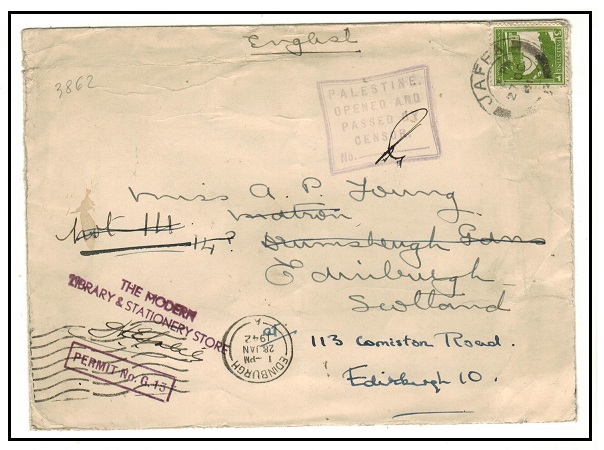 English
3862
JAFFA
27
PALESTINE.
OPENED AND
PASSED BY
CENSOR.
No.
Miss A. P. Young
Matron
Not 111
14ᴬ Drumsheugh Gdns
Edinburgh
Scotland
at
113 Comiston Road.
Edinburgh 10.
THE MODERN
LIBRARY & STATIONERY STORE
PERMIT No. G. 13
EDINBURGH
1-PM
28 JAN
1942